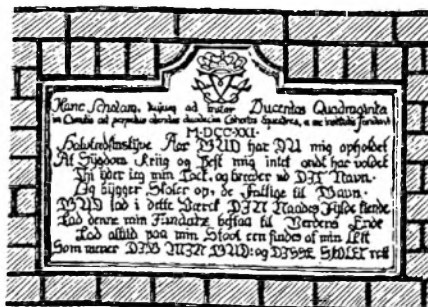 Hanc Scholam, ad instar Ducentas Quadraginta
in ad perpetuo alendas duodecim Cohortes Equestres, a me
M·DCC·XXI·
Halvtredsinstyve Aar GUD har DU mig opholdet
At Sygdom Kriig og Pest mig intet ondt har voldet
Thi yder jeg min Tack, og breeder ud DIT Navn·
Og bygger Skoler op, de Fattige til Gavn·
GUD lad i dette Værck DIN Naades Fylde kiende
Lad denne min Fundatz bestaa til Verdens Ende
Lad altid paa min Stool een findes af min Ætt
Som meener DIG MIN GUD: og DISSE SKOLER rett